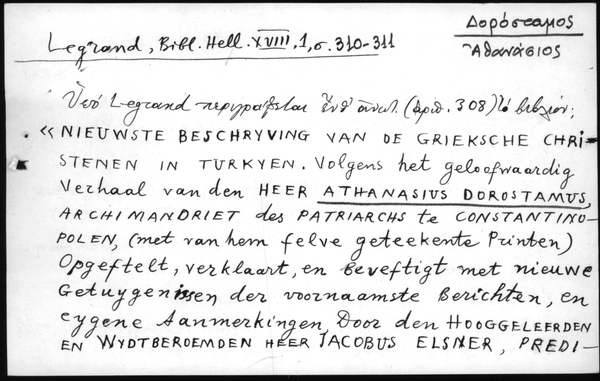 Δορόσταμος
Ἀθανάσιος
Legrand, Bibl. Hell. XVIII, 1, σ. 310-311
Ὑπό Legrand περιγράφεται ἔνθ' ἀνωτ. (ἀριθ. 308) τό βιβλίον:
«NIEUWSTE BESCHRYVING VAN DE GRIEKSCHE CHRI-
STENEN IN TURKYEN. Volgens het geloofwaardig
Verhaal van den HEER ATHANASIUS DOROSTAMUS,
ARCHIMANDRIET des PATRIARCHS te CONSTANTINO-
POLEN, (met van hem felve geteekente Printen)
Opgeftelt, verklaart, en beveftigt met nieuwe
Getuygenissen der voornaamste Berichten, en
eygene Aanmerkingen, Door den HOOGGELEERDEN
EN WYDTBEROEMDEN HEER JACOBUS ELSNER, PREDI-